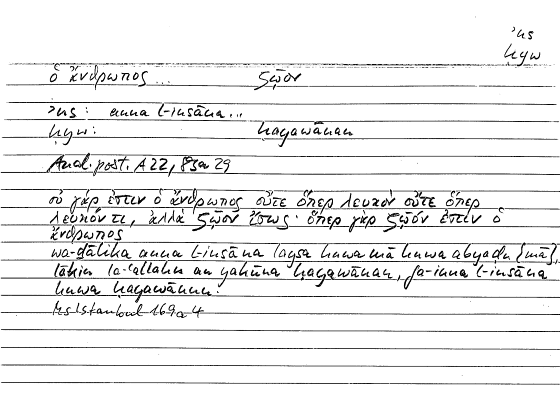 ʾns
ḥyw
ὁ ἄνθρωπος ... ζῷον
ʾns: anna l-insāna...
ḥyw: ḥayawānan
Anal. post. A 22, 83a 29
οὐ γάρ ἐστιν ὁ ἄνθρωπος οὔτε ὅπερ λευκὸν οὔτε ὅπερ
λευκόν τι, ἀλλὰ ζῷον ἴσως· ὅπερ γὰρ ζῷόν ἐστιν ὁ
ἄνθρωπος
wa-ḏālika anna l-insāna laysa huwa mā huwa abyaḍu {mā},
lākin la-ʿallahu an yakūna ḥayawānan, fa-inna l-insāna
huwa ḥayawānun.
Ms Istanbul 169a4